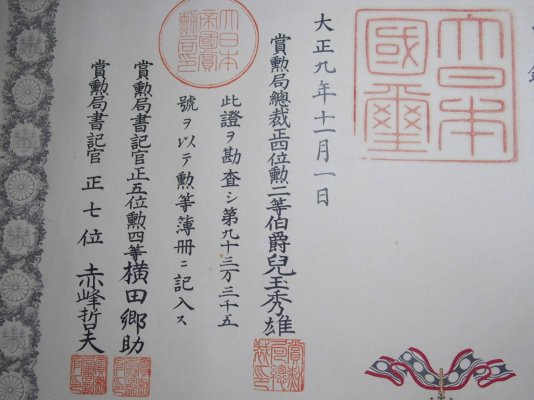 大日本國璽
大正九年十一月一日
賞勲局總裁正四位勲二等伯爵兒玉秀雄
此證ヲ勘査シ第九十三万三千五
號ヲ以テ勲等簿册ニ記入ス
大日本帝國賞勲局印
賞勲局書記官正五位勲四等横田郷助
賞勲局書記官正七位赤峰哲夫